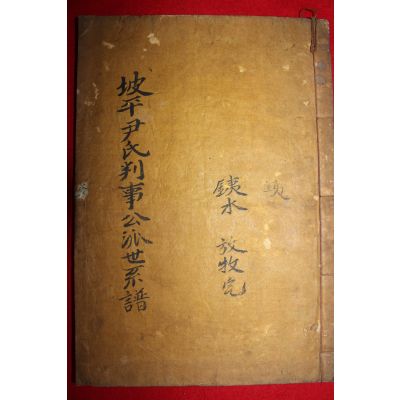 坡平尹氏判事公派世系譜
鐵水 放牧完